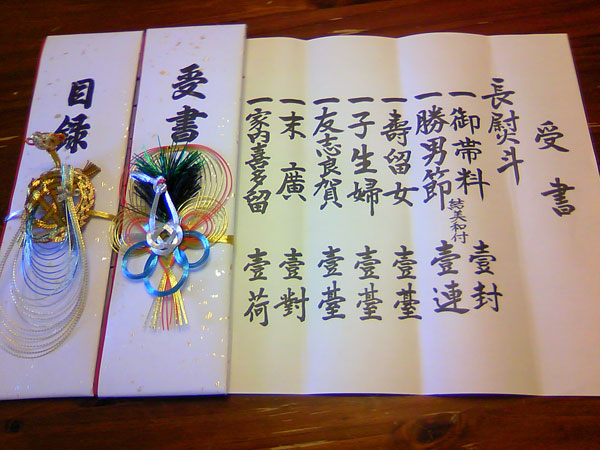 受書
長尉熨斗
一御帯料 結美和付 壹封
一勝男節 壹連
一壽留女 壹臺
一子生婦 壹臺
一友志良賀 壹臺
一末廣 壹對
一家内喜多留 壹荷
受書
目録